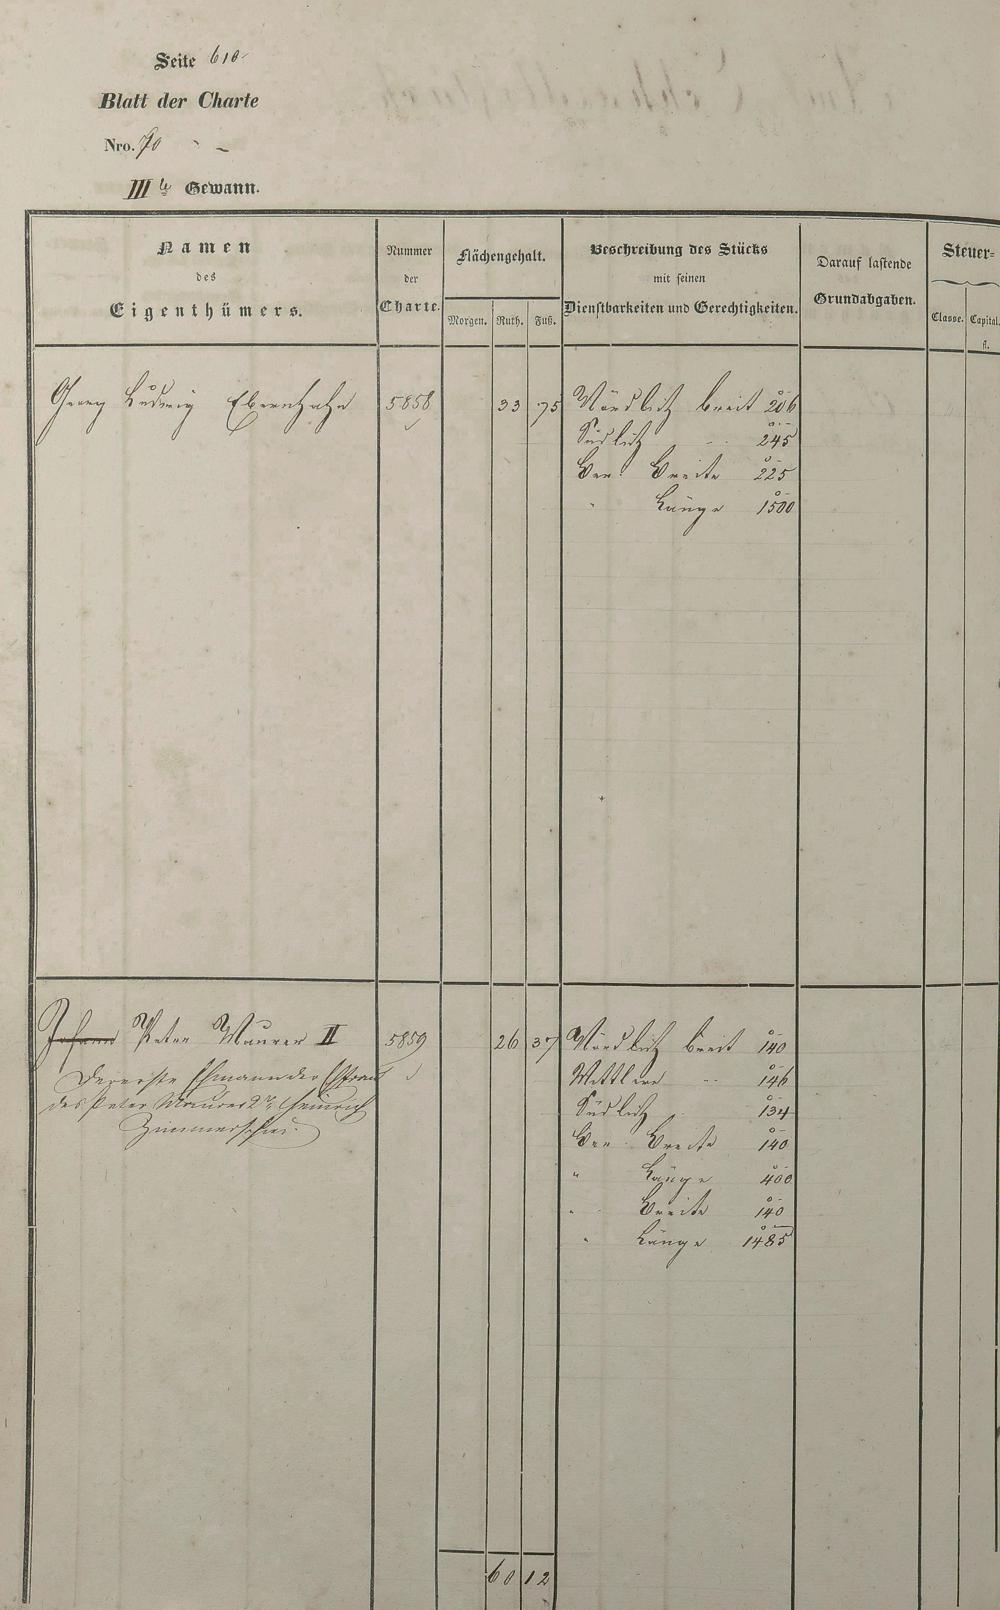 Seite 610
Blatt der Charte
Nro. 70
III te Gewann.
Namen
des
Eigenthümers.
Nummer
der
Charte.
Flächengehalt.
Morgen. Ruth. Fuß.
Beschreibung des Stücks
mit seinen
Dienstbarkeiten und Gerechtigkeiten.
Darauf lastende
Grundabgaben.
Steuer=
Classe. Capital.
fl.
Georg Ludwig Ebernhahn 5858 33 75 Nördlich breit 206
Südlich " 245
Ber. Breite 225
" Länge 1500
Johann Peter Maurer II 5859 26 37 Nördlich breit 140
Der erste Ehmann der Ehfrau
des Peter Maurer 2r, Heinrich
Mittlere " 146
Südlich 134
Ber. Breite 140
" Länge 400
" Breite 140
" Länge 1485
60 12